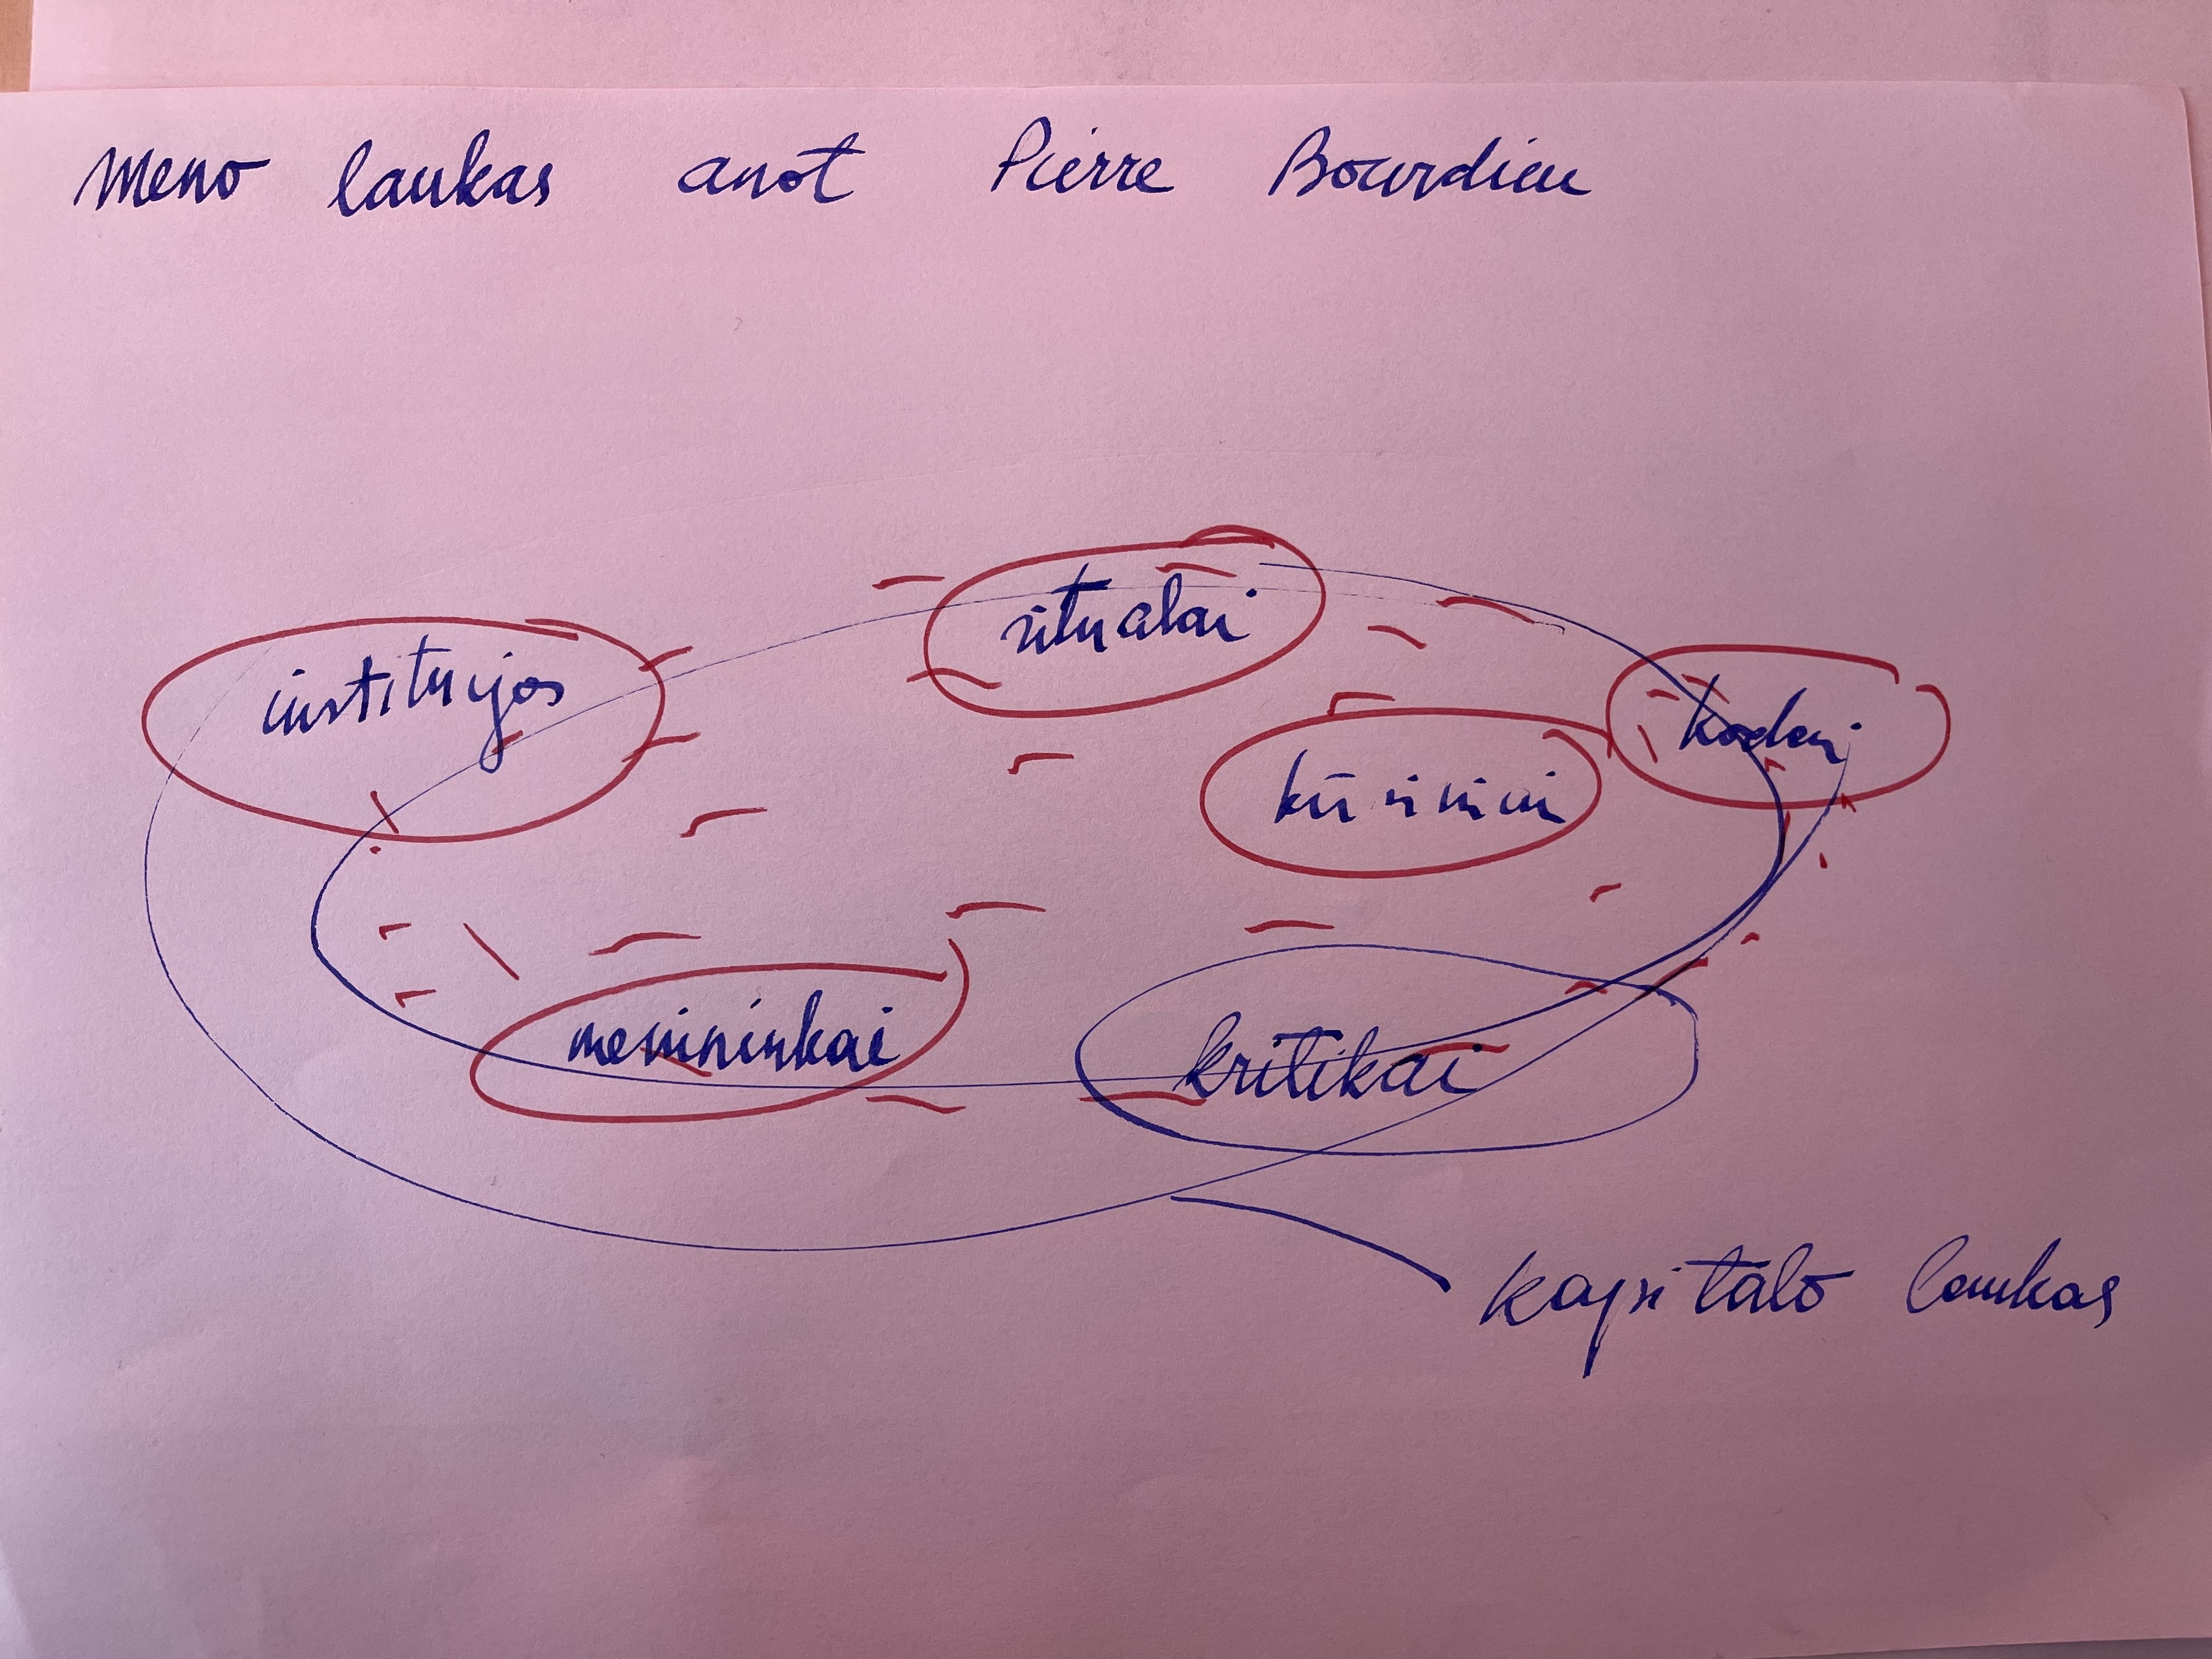 Meno laukas anot Pierre Bourdieu
ritualai
institucijos
kodai
kūriniai
menininkai
kritikai
kapitalo laukas